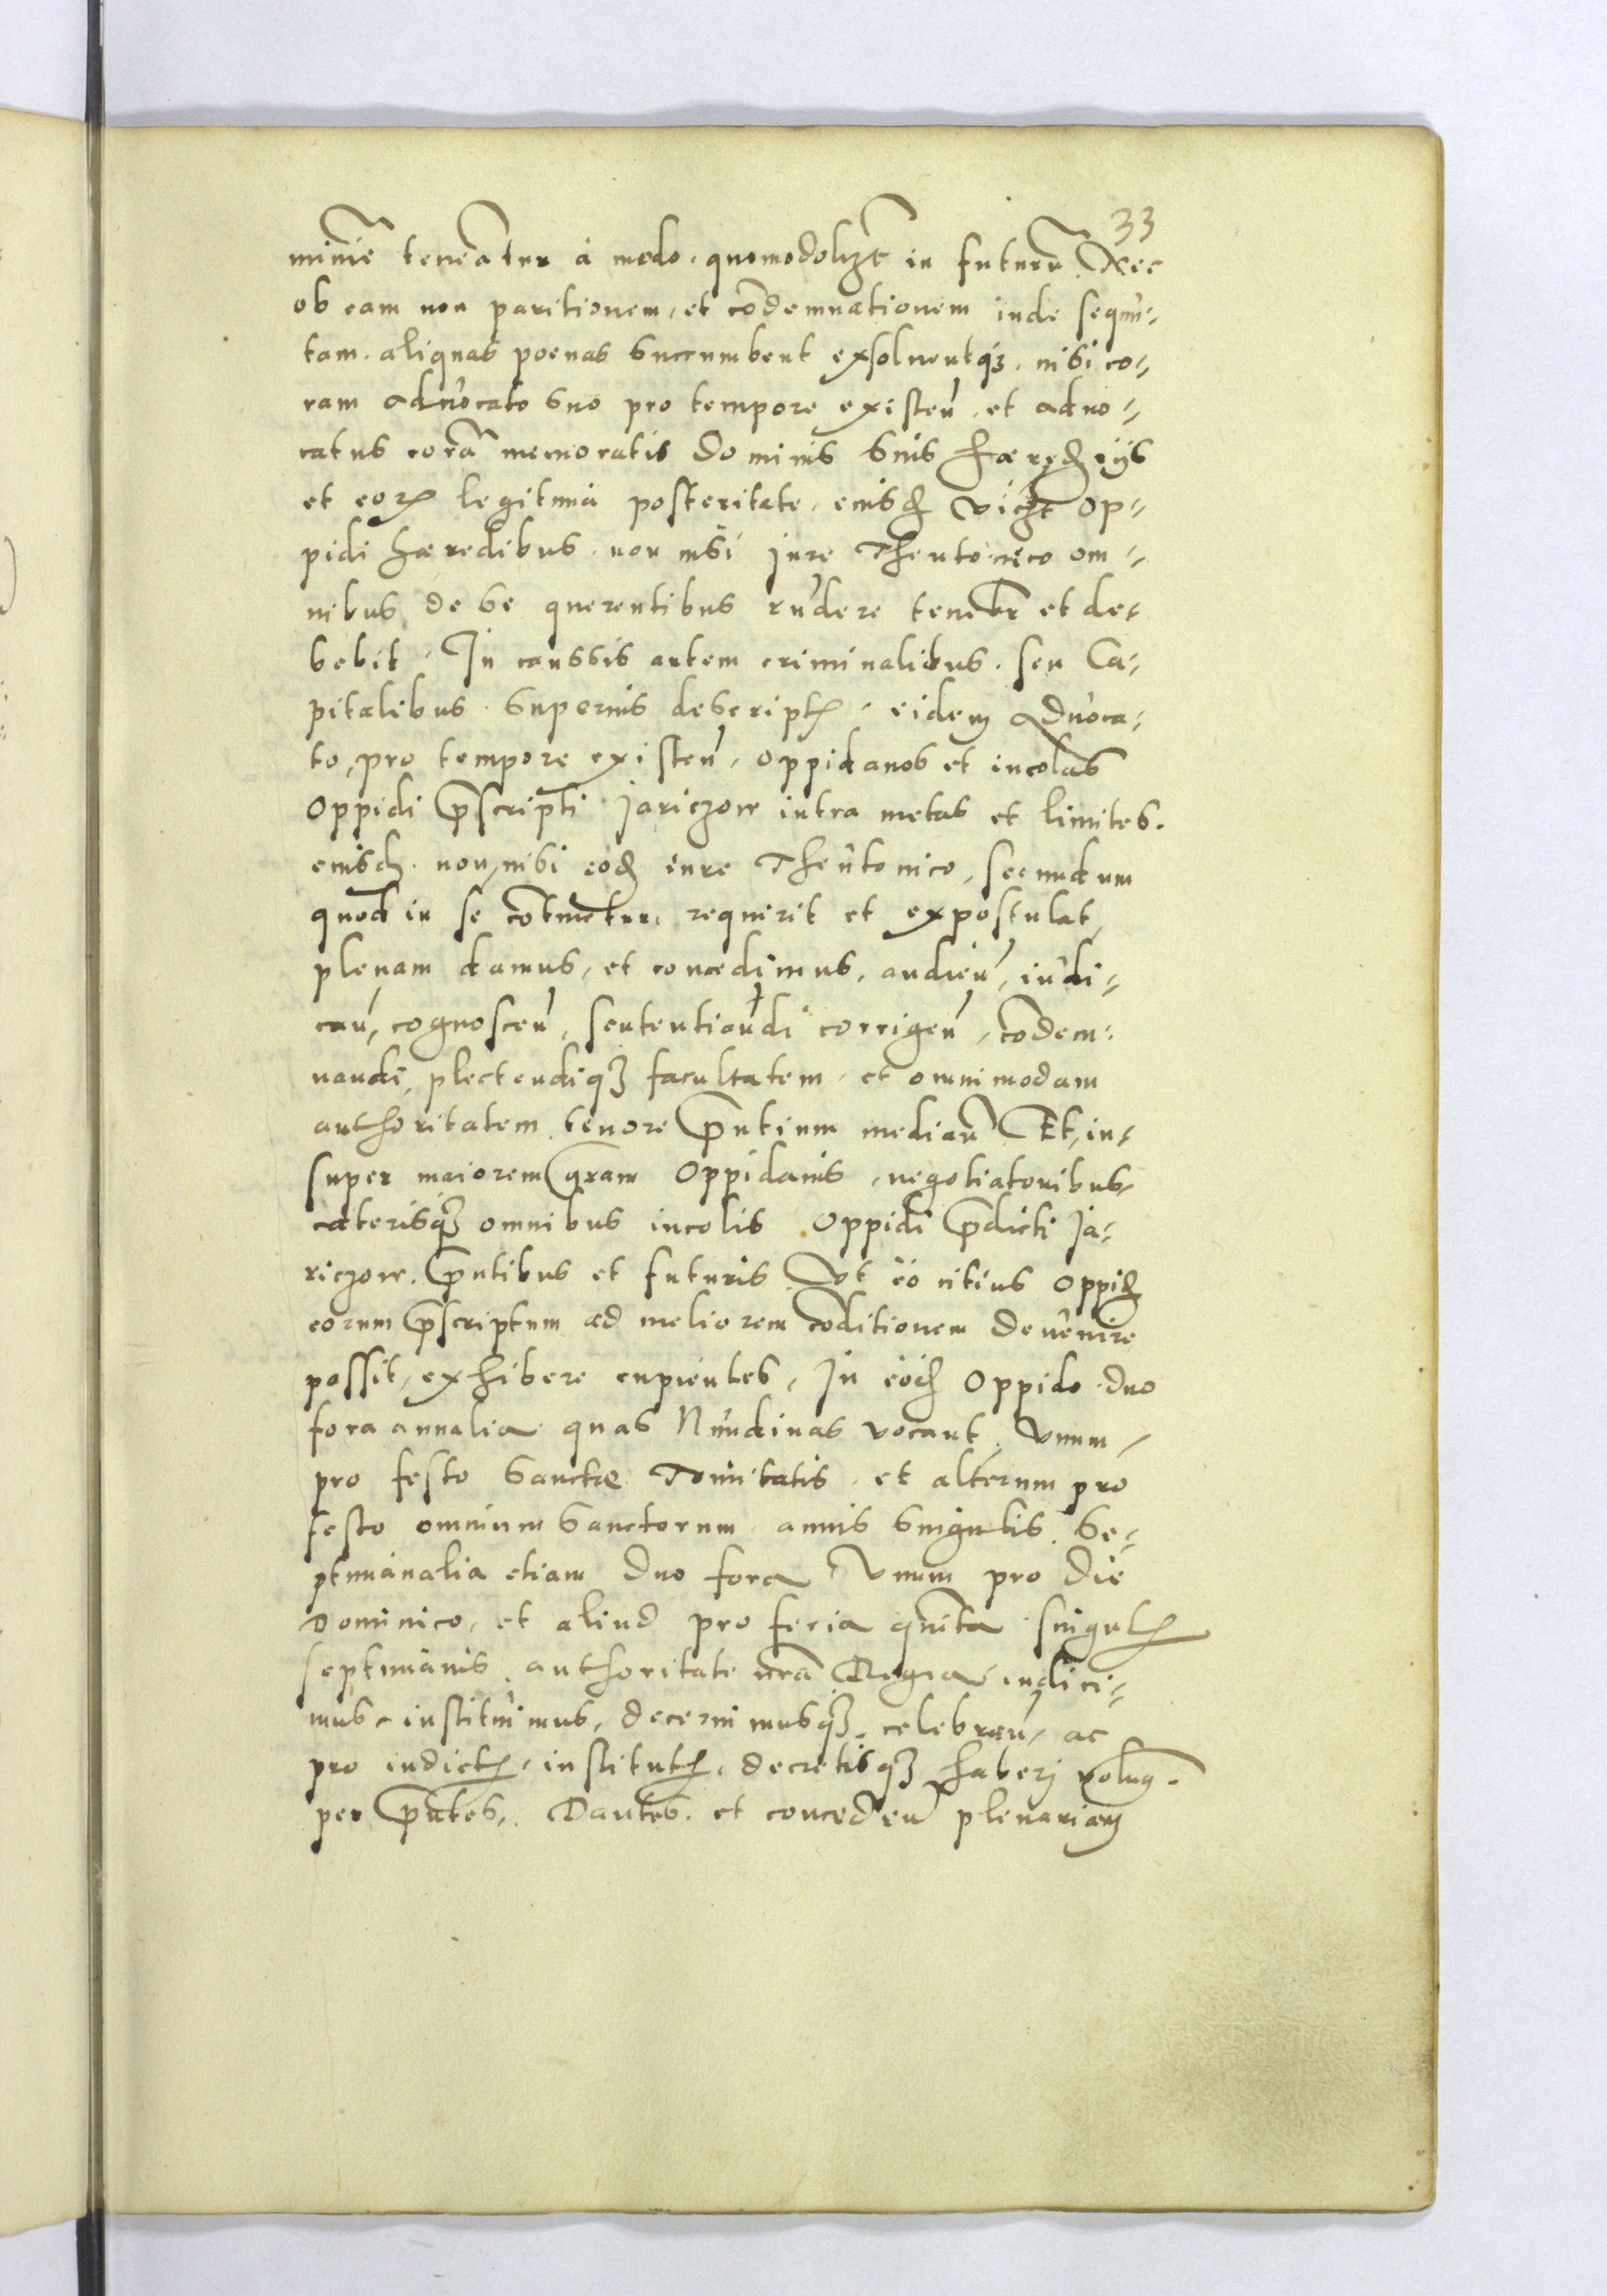 33
minime teneantur a modo quomodolzt in futurū. Nec
ob eam non paritionem, et cōdemnationem inde sequu-
tam. aliquas poenas succumbent exsolventqz. nisi co-
ram advocato suo pro tempore existeñ, et advo-
catus corā memoratis dominis suis hæred
et eoꝝ legitima posteritate, eiusd vizt op-
pidi hæredibus. non nisi jure Theutonico om-
nibus de se querentibus rñdere tenebr et de-
bebit. In caussis autem criminalibus. seu Ca-
pitalibus superius descriptꝭ. eidem advoca-
to, pro tempore existeñ, oppidanos et incolas
oppidi p̄scripti Jariczow intra metas et limites.
eiusd. non nisi eod iure Theutonico, secundum
quod in se cōtinetur. requirit et expostulat,
plenam damus, et concedimus, audieñ, iudi-
cañ, cognosceñ, sententiandi corrigeñ, cōdem-
nandi, plectendiqz facultatem, et omnimodam
authoritatem tenore p̄ntium mediañ. Et, in-
super maiorem gram oppidanis, negotiatoribus,
cæterisqz omnibus incolis oppidi p̄dicti Ja-
riczow. p̄ntibus et futuris. Ut eo citius oppid
eorum p̄scriptum ad meliorem cōditionem devenire
possit, exhibere cupientes, In eod oppido duo
fora annalia quas Nundinas vocant, unum,
pro festo Sanctæ Trinitatis. et alterum pro
festo omnium Sanctorum. annis singulis. Se-
ptimanalia etiam duo fora Unum pro die
Dominico, et aliud pro feria quinta singulꝭ
septimanis. authoritate nrā Regia indici-
mus, instituimus, decernimusqz celebrañ, ac
pro indictꝭ, institutꝭ, decretisqz haberj volum.
per p̄ntes. Dantes. et concedeñ plenariam